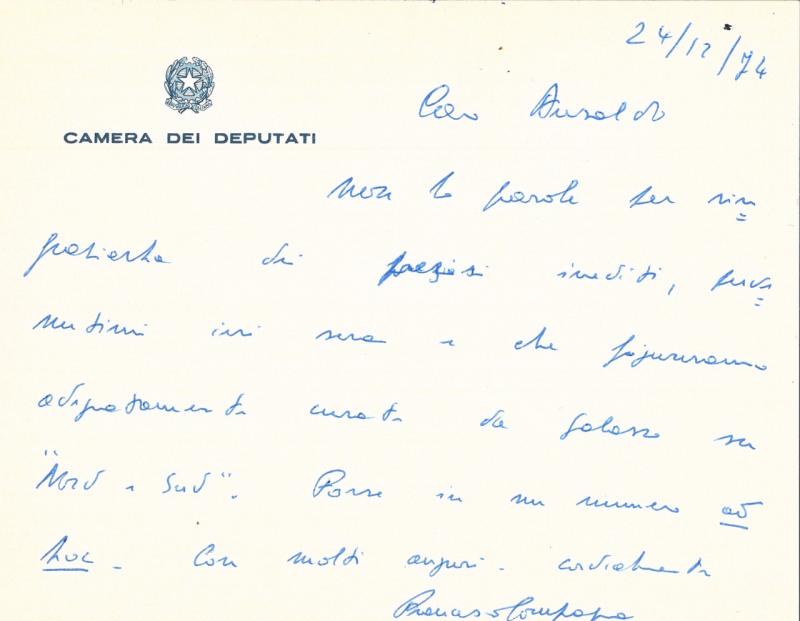 24/12/74
CAMERA DEI DEPUTATI
Caro Ansaldo
non ho parole per rin=
graziarLa di preziosi inediti, perve=
nutimi ieri sera e che figureranno
adeguatamente curati da Galasso su
"Nord e Sud". Forse in un numero ad
hoc. Con molti auguri. cordialmente
Francesco Compagna